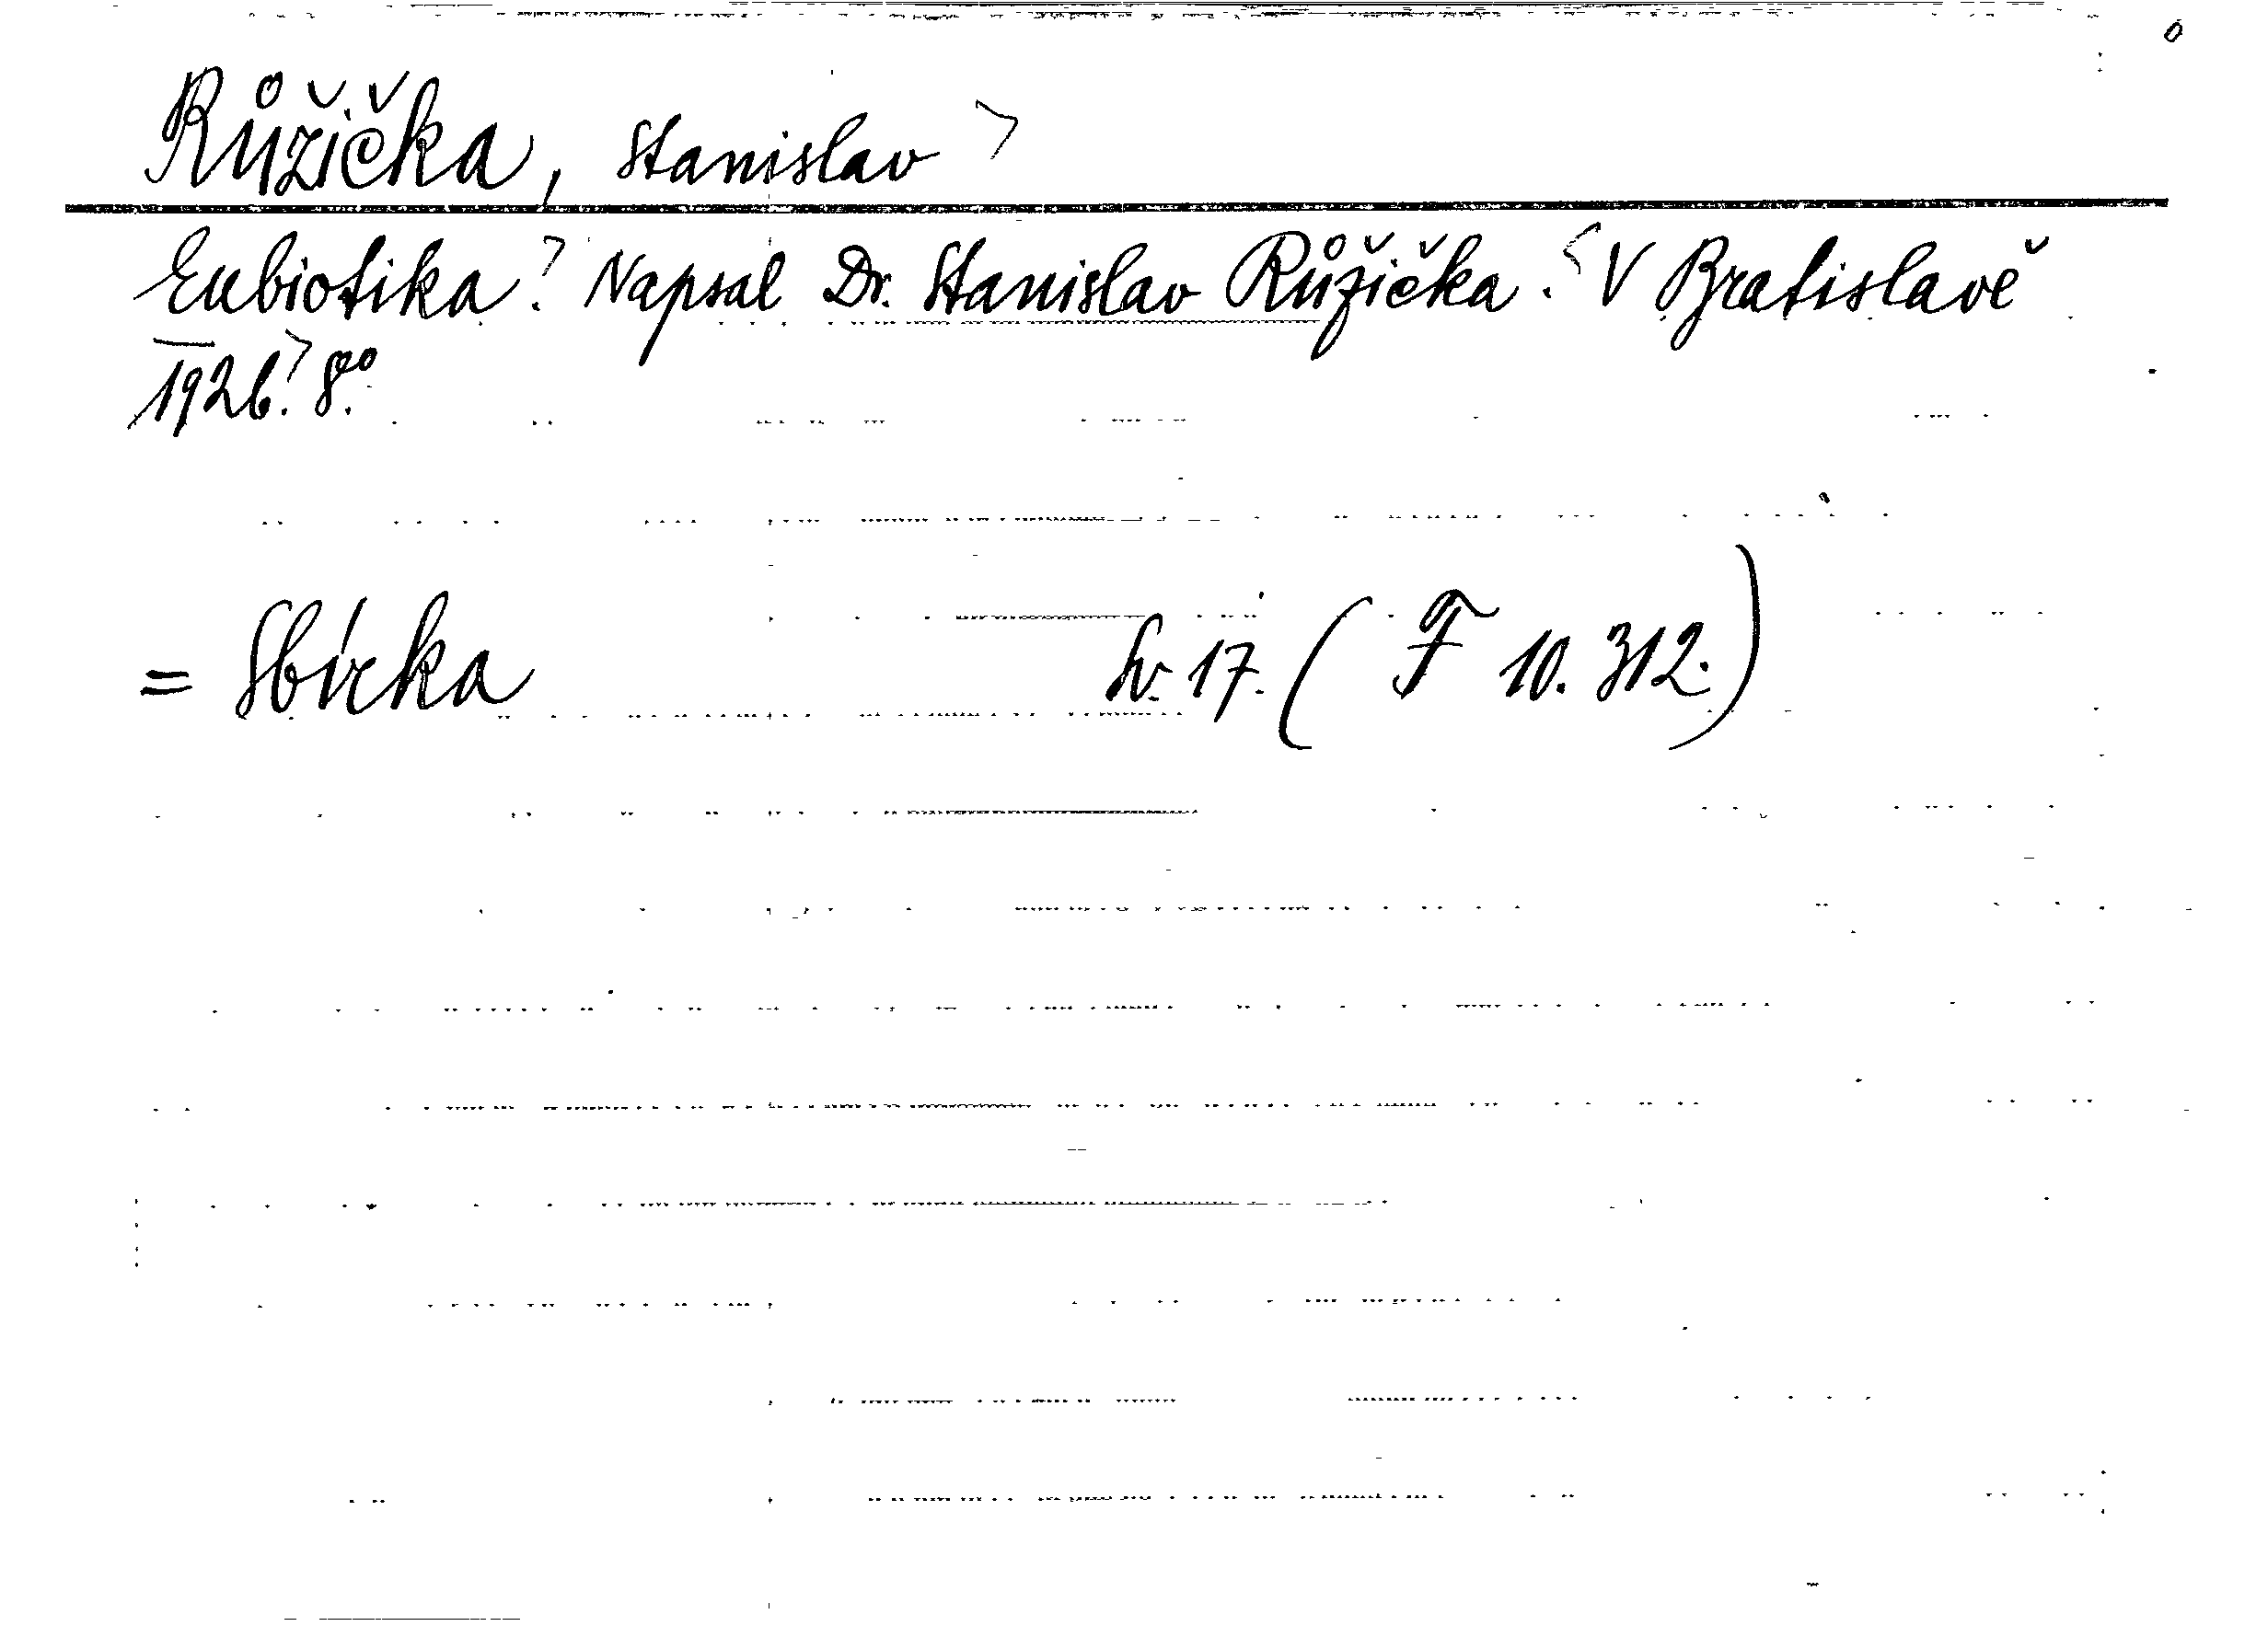 Růžička, Stanislav
Eubiotika. Napsal Dr. Stanislav Růžička. V Bratislavě
1926. 8°.
= Sbírka sv. 17. (F 10.312.)